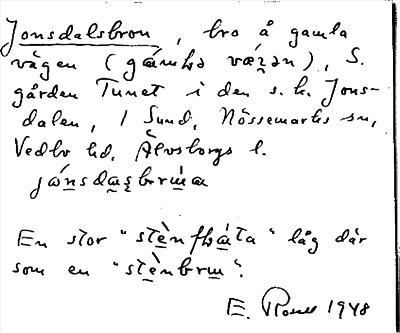 Jonsdalsbron, bro å gamla
vägen (gámḷa vǽgən), S.
gården Tunet i den s.k. Jons-
dalen, i Sund, Nössemarks sn,
Vedbo hd, Älvsborgs l.
En stor "stènfḷata" låg där
som en "stènbrɯ".
E. 1948